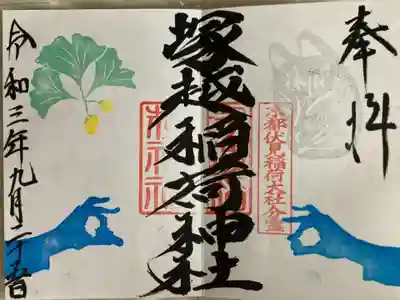 奉拝
京都伏見稲荷大社分霊
塚越稲荷神社
令和三年九月二十五日